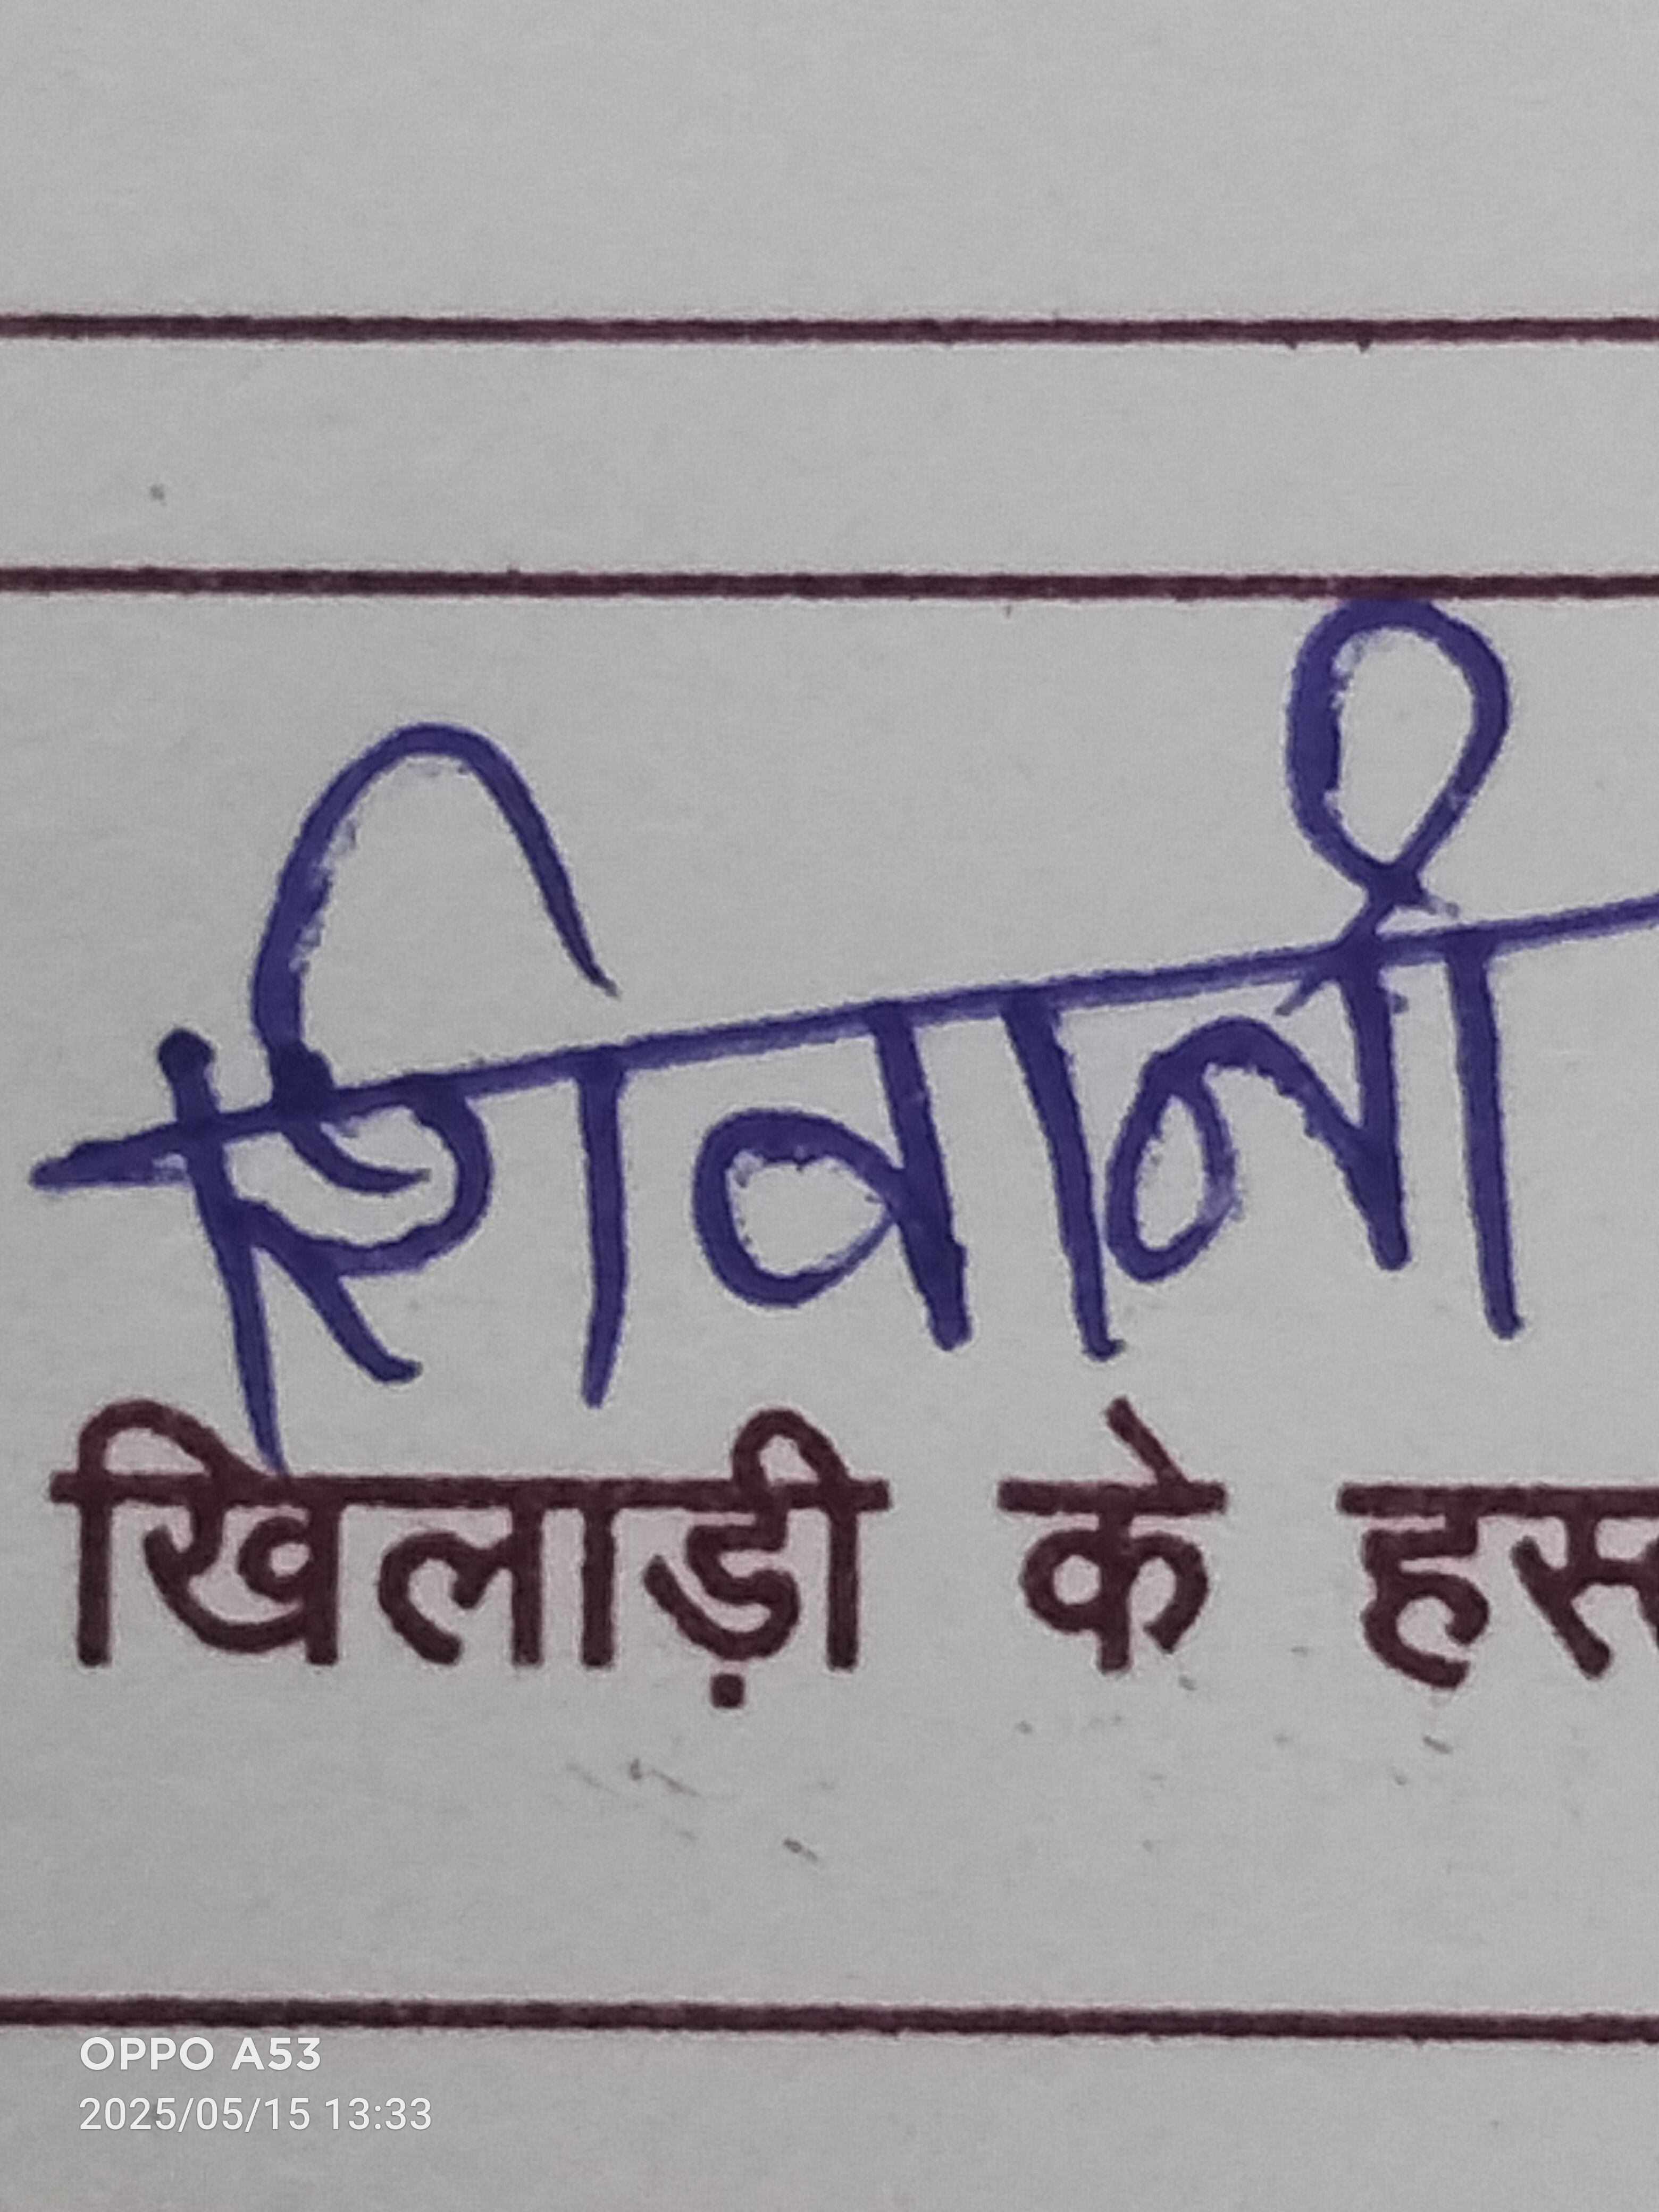 शिवानी
खिलाड़ी के हस्त
OPPO A53
2025/05/15 13:33